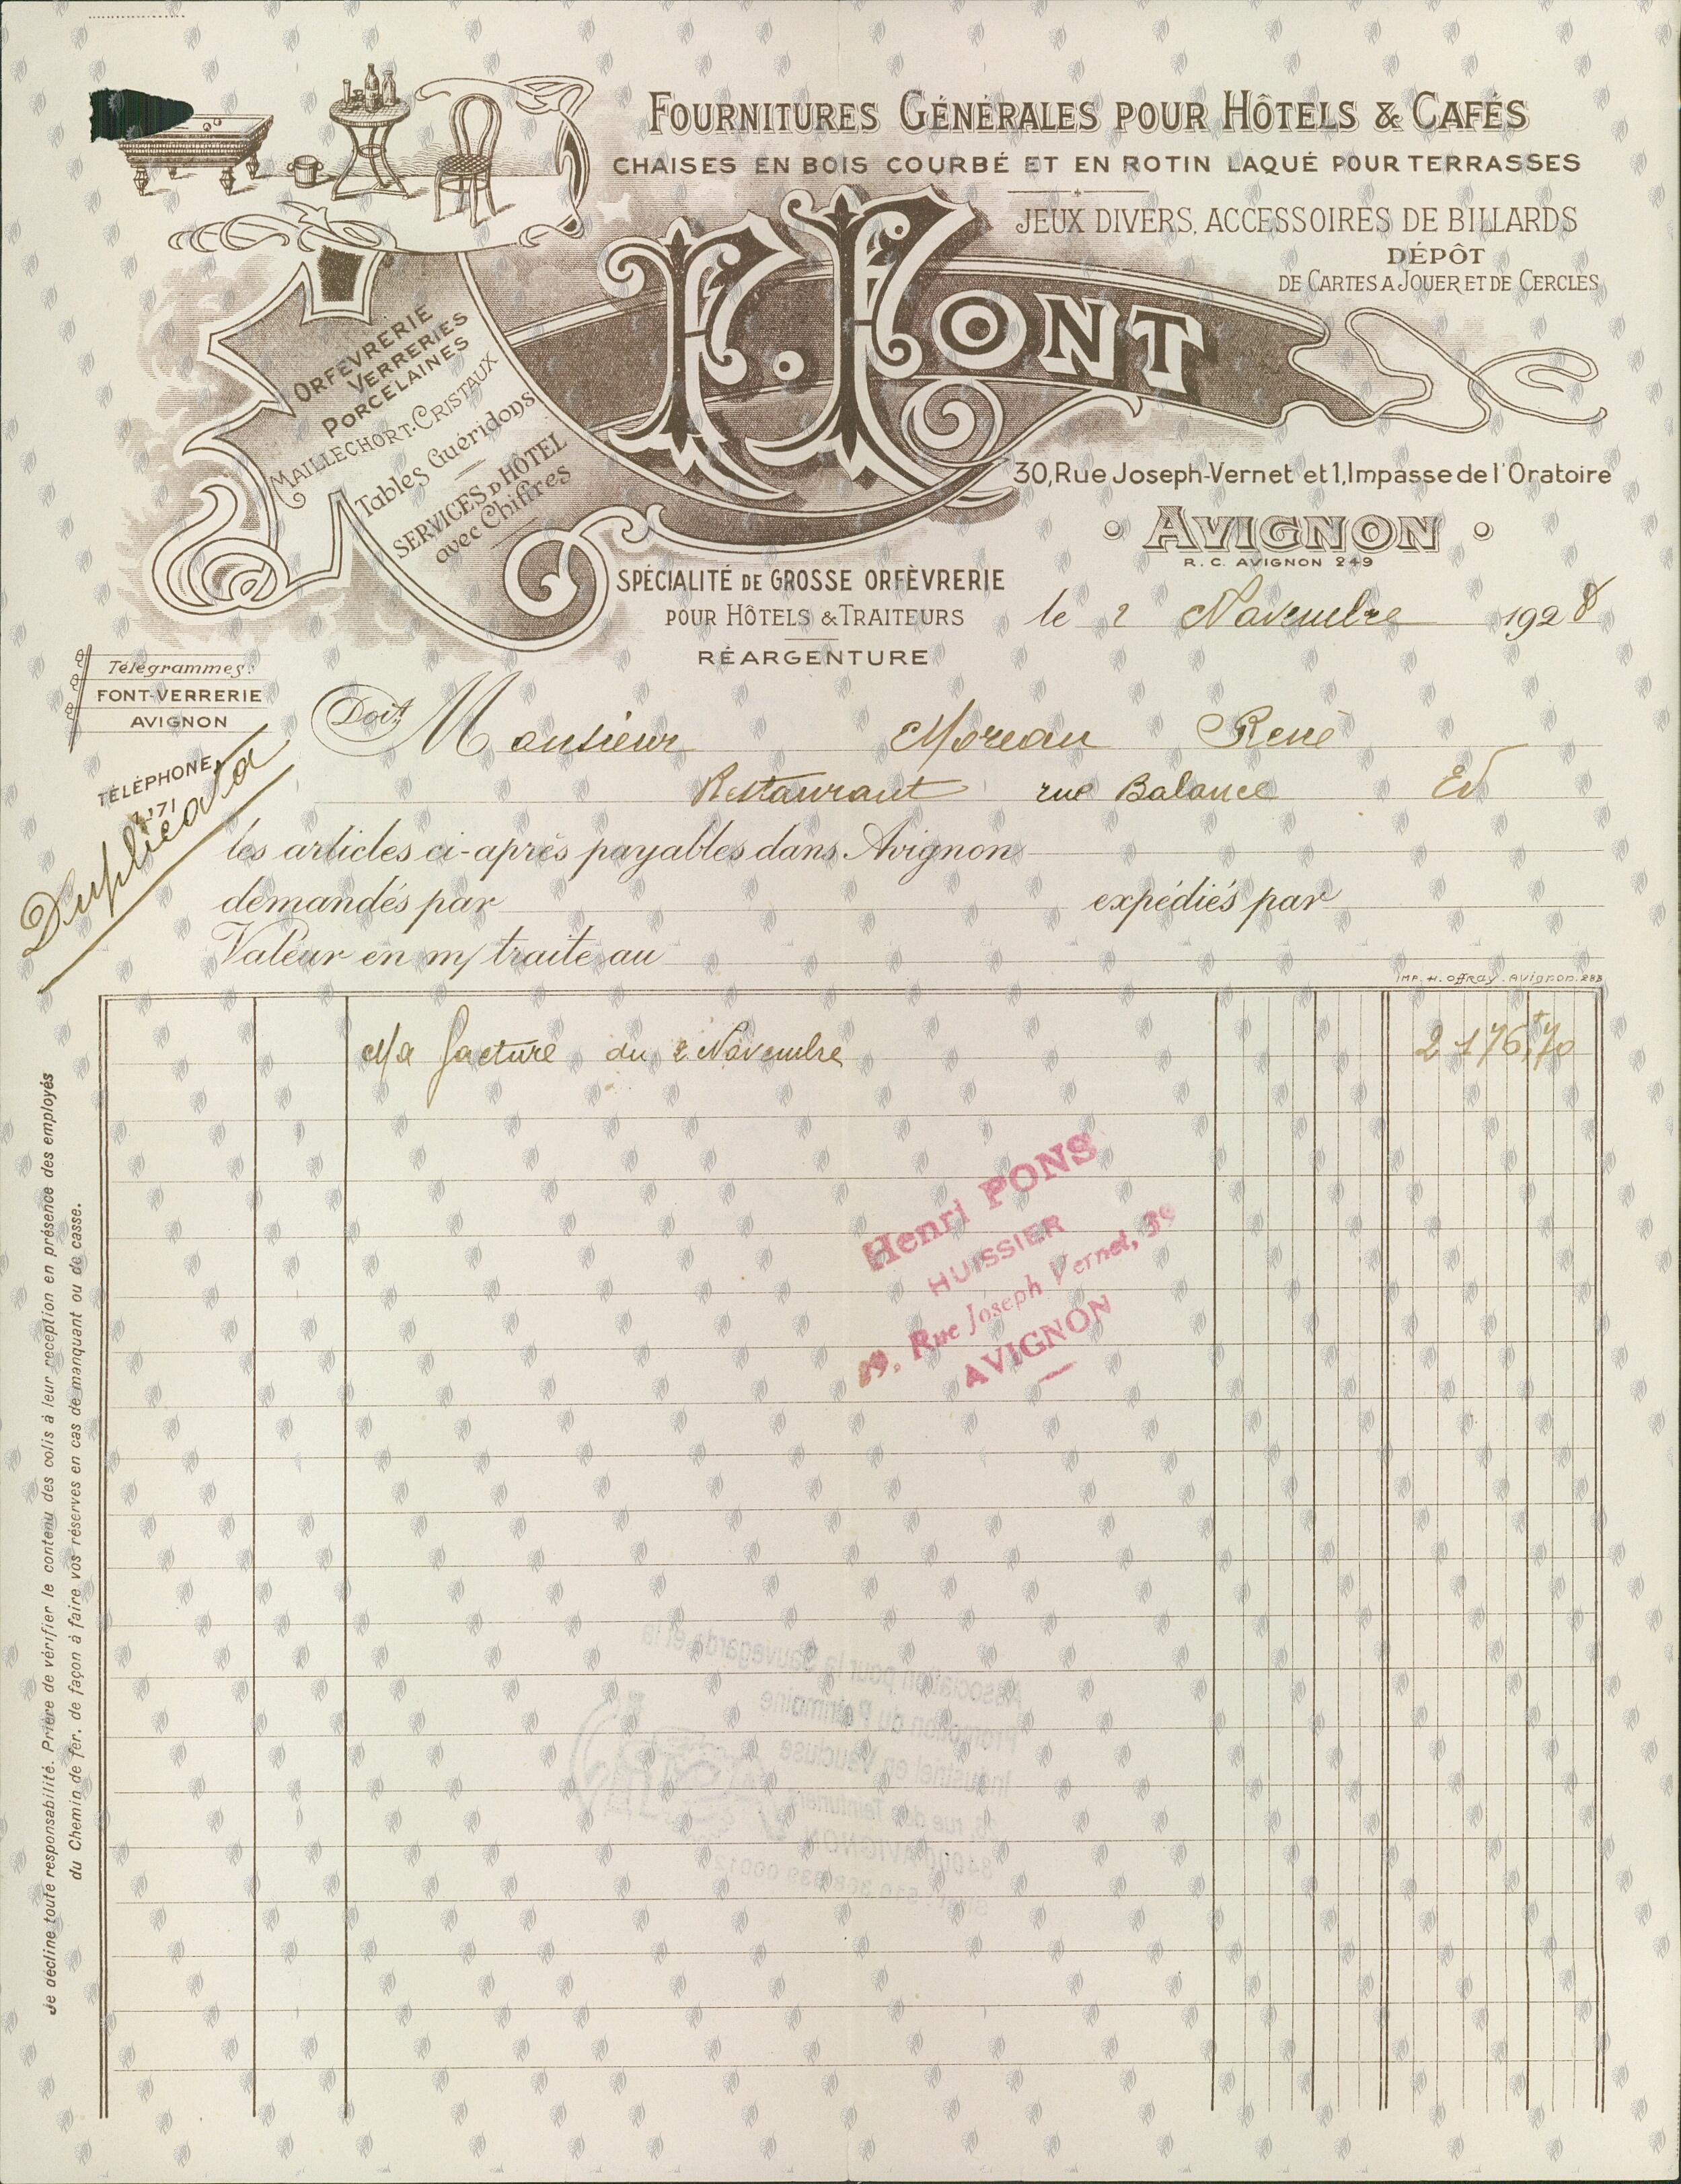 FOURNITURES GÉNÉRALES POUR HÔTELS & CAFÉS
CHAISES EN BOIS COURBÉ ET EN ROTIN LAQUÉ POUR TERRASSES
JEUX DIVERS, ACCESSOIRES DE BILLARDS
DÉPÔT
DE CARTES A JOUER ET DE CERCLES
F. FONT
ORFÈVRERIE
VERRERIES
PORCELAINES
MAILLECHORT-CRISTAUX
Tables Guéridons
SERVICES D'HÔTEL
avec Chiffres
30, Rue Joseph-Vernet et 1, Impasse de l'Oratoire
AVIGNON
R. C. AVIGNON 249
SPÉCIALITÉ DE GROSSE ORFÈVRERIE
POUR HÔTELS & TRAITEURS
RÉARGENTURE
le 2 Novembre 1928
Télégrammes:
FONT-VERRERIE
AVIGNON
TÉLÉPHONE
Duplicata
Doit Monsieur Moreau René
Restaurant rue Balance EV
les articles ci-après payables dans Avignon
demandés par expédiés par
Valeur en m/ traite au
IMP. H. Offray. Avignon. 283
Ma facture du 2 Novembre 2176,70
Henri PONS
HUISSIER
39, Rue Joseph Vernet, 39
AVIGNON
Je décline toute responsabilité. Prière de vérifier le contenu des colis à leur réception en présence des employés
du Chemin de fer. de façon à faire vos réserves en cas de manquant ou de casse.
Association pour la Sauvegarde et la
Promotion du Patrimoine
Industriel en Vaucluse
rue des Teinturiers
84000 AVIGNON